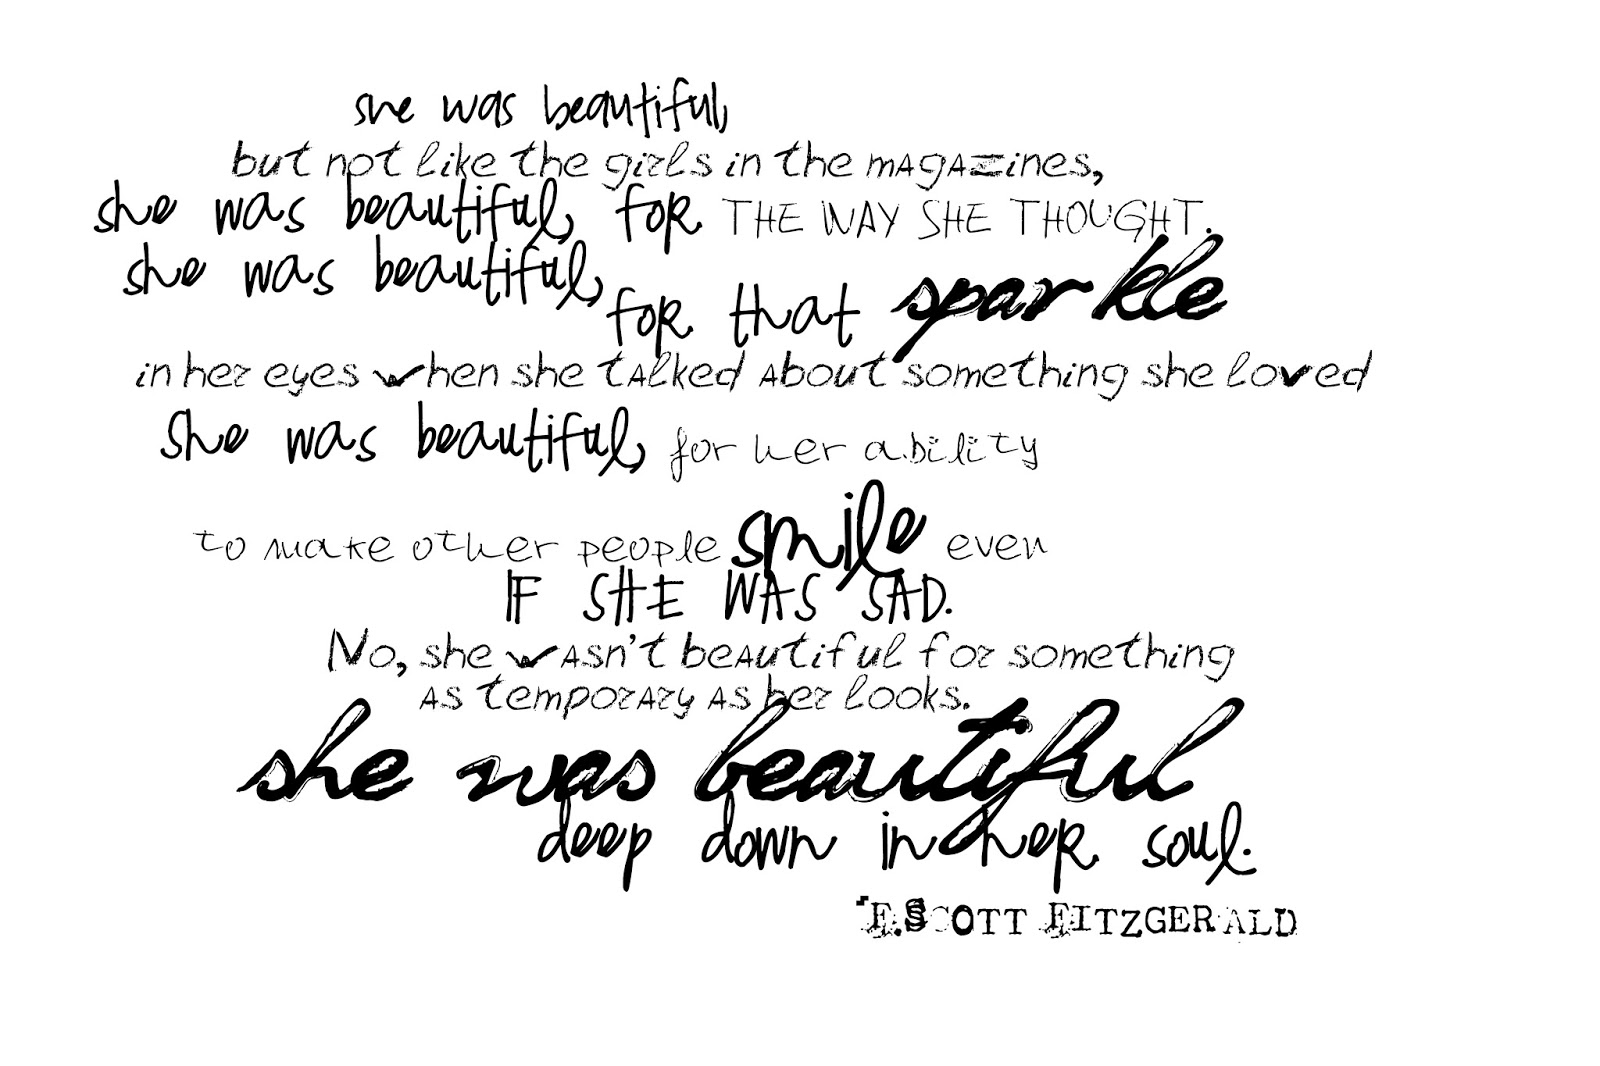 she was beautiful,
but not like the girls in the magazines,
she was beautiful, for THE WAY SHE THOUGHT.
she was beautiful,
for that sparkle
in her eyes when she talked about something she loved
she was beautiful, for her ability
to make other people smile even
IF SHE WAS SAD.
No, she wasn't beautiful for something
as temporary as her looks.
she was beautiful
deep down in her soul.
F.SCOTT FITZGERALD